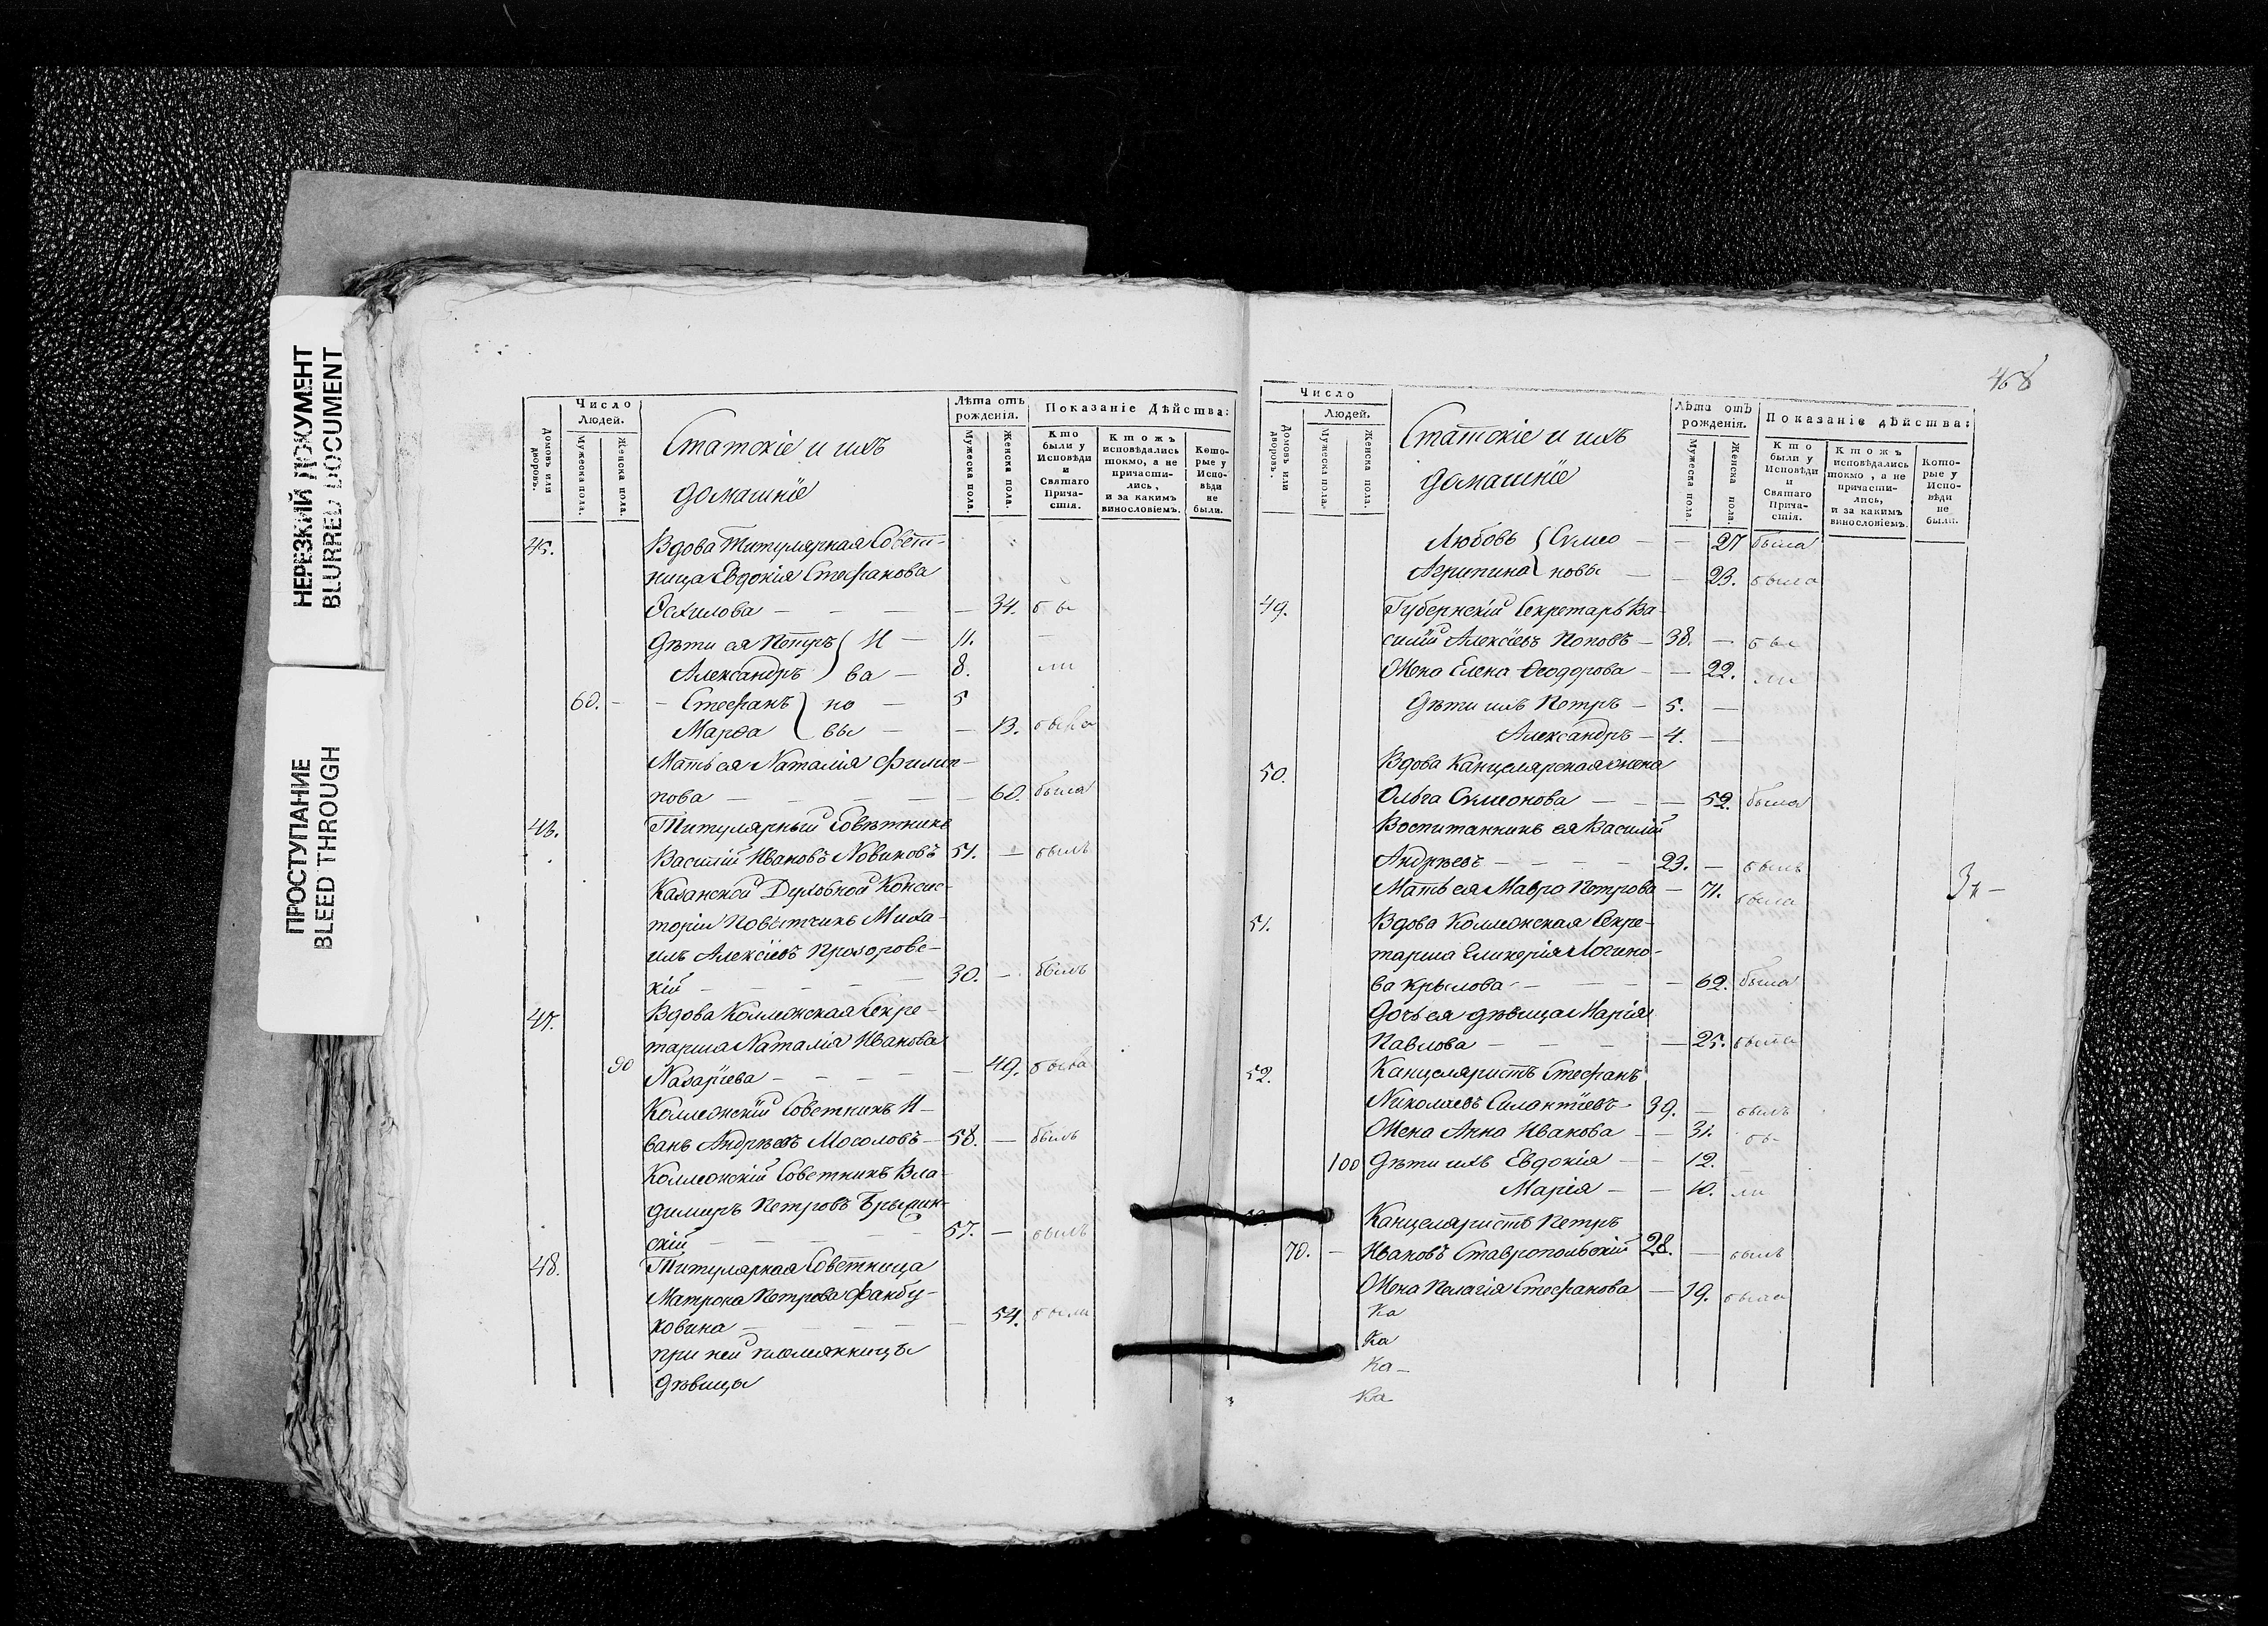 НЕРЕЗКИЙ ДОКУМЕНТ
BLURRED DOCUMENT
ПРОСТУПАНИЕ
BLEED THROUGH
Число
Людей.
Домовъ или дворовъ.
Мужеска пола.
Женска пола.
Статскіе и ихъ
домашніе
Лѣта отъ рожденія.
Мужеска пола.
Женска пола.
Показаніе Дѣйства:
Кто были у Исповѣди и Святаго Прича-стія.
Ктожъ исповѣдались токмо, а не причасти-лись, и за какимъ винословіемъ.
Кото-рые у Испо-вѣди не были.
45. Вдова Титулярная Совет-
ница Евдокія Стефанова
Осхилова — — — — 34. бы
Дѣти ея Петръ И — 11. —
Александръ ва — 8. ли
60. - - Стефанъ но — 5
Марѳа вы — — 13. была
Мать ея Наталія Филип-
пова — — — — — 60. была
46. Титулярный Совѣтникъ
Василій Ивановъ Новиковъ 51. — былъ
Казанской Духовной Консис-
торіи Повытчикъ Миха-
илъ Алексіевъ Прозоровс-
кій — — — — — 30. — былъ
47. Вдова Коллежская Секре-
тарша Наталія Иванова
90 Назаріева — — — — — 49. была
Коллежскій Советникъ И-
ванъ Андреевъ Мосоловъ — 58. — былъ
Коллежскій Советникъ Вла-
димиръ Петровъ
скій — — — — 57. — былъ
48. Титулярная Советница
Матрона Петрова
ковина — — — — — 54. была
при ней племянницы
Дѣвицы
468
Число
Людей.
Домовъ или дворовъ.
Мужеска пола.
Женска пола.
Статскіе и ихъ
домашніе
Лѣта отъ рожденія.
Мужеска пола.
Женска пола.
Показаніе дѣйства:
Кто были у Исповѣди и Святаго Прича-стія.
Ктожъ исповѣдались токмо, а не причасти-лись, и за какимъ винословіемъ.
Кото-рые у Испо-вѣди не были.
Любовь Симео — — 27 была
Агрипина новы — — 23. была
49. Губернскій Секретарь Ва-
силій Алексіевъ Поповъ — 38. — бы
Жена Елена Ѳеодорова — — 22. ли
Дѣти ихъ Петръ — 5. —
Александръ — 4. —
50. Вдова Канцелярская жена
Ольга Симеонова — — — 52. была
Воспитанникъ ея Василій
Андреевъ — — — — 23. — былъ
Мать ея Мавра Петрова — 71. была
51. Вдова Коллежская Секре-
тарша Гликерія Логино-
ва Крылова — — — — 62. была
Дочь ея дѣвица Марія
Павлова — — — — 25. была
52. Канцеляристъ Стефанъ
Николаевъ Силантіевъ 39. — былъ
Жена Анна Иванова — — 31. бы-
100 Дѣти ихъ Евдокія — — 12. —
Марія — — 10. ли
Канцеляристъ Петръ
70. — Ивановъ Ставропольскій 28. — былъ
Жена Пелагія Стефанова — 19. была
Ка
Ка
Ка-
Ка